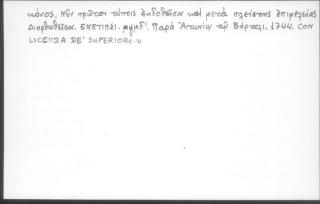 κόνος. Νῦν πρῶτον τύποις ἐκδοθεῖσα καὶ μετὰ πλείστης ἐπιμελείας
Διορθωθεῖσα. ΕΝΕΤΙΗΣΙ. αψμδ'. Παρὰ Ἀντωνίῳ τῷ Βόρτολι. 1744. CON
LICENZA DE' SUPERIORI.